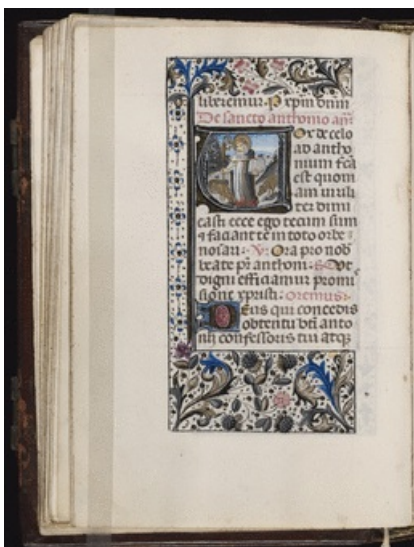 liberemur. P xpm dnm
De sancto anthonio añ
Vox de celo
ad antho
nium fca
est quoni
am virili
ter dimi
casti ecce ego tecum sum
⁊ faciam te in toto orbe
nosari. V. Ora pro nob
beate pr anthoni. R Vt
digni efficiamur promi
sione xpristi. Oremus.
Deus qui concedis
obtentu bti anto
nii confessoris tui atqz